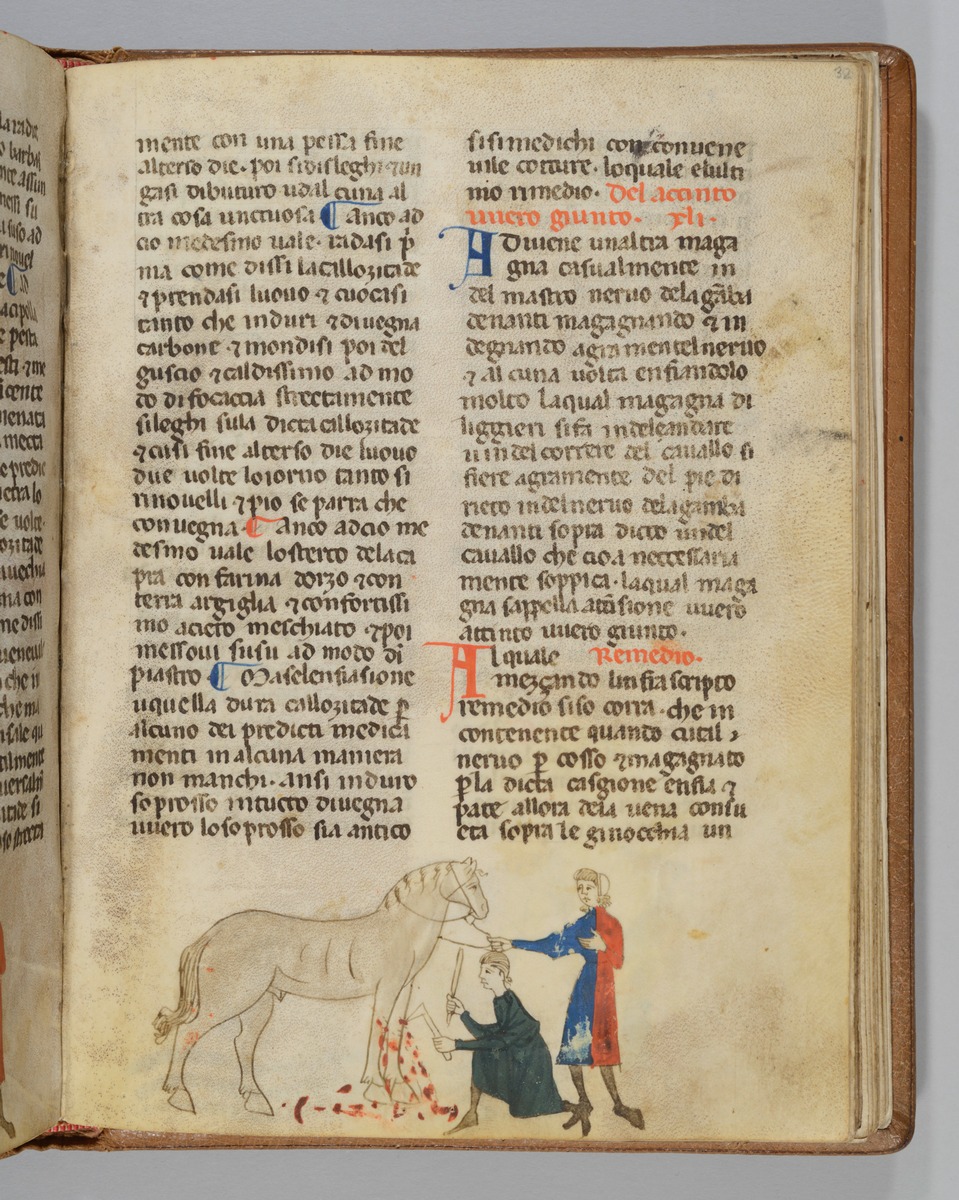 32
mente con una pessa fine
alterso die. poi sidisleghi ⁊un
gasi dibuturo udal cuna al
tra cosa unctuosa ¶ Anco ad
cio medesmo uale. radasi p̄
ma come dissi lacallozitade
⁊ prendasi luouo ⁊ cuocasi
tanto che induri ⁊diuegna
carbone ⁊ mondisi poi del
guscio ⁊caldissimo ad mo
do difocaccia strectamente
sileghi sula dicta callozitade
⁊cusi fine alterso die luouo
due volte loiorno tanto si
rinouelli ⁊ pio se parra che
conuegna. ¶ Anco adcio me
desmo uale losterco delaca
pra con farina dorzo ⁊con
terra argiglia ⁊ confortissi
mo aceto meschiato ⁊poi
messoui susu ad modo di
piastro ¶ Maselensiasione
uquella dura callozitade p̱
alcuno dei predicti medica
menti inalcuna maniera
non manchi. ansi induro
soprosso intucto diuegna
uuero lo soprosso sia antico
sisimedichi con conuene
uile cotture. loquale elulti
mo rimedio. Del attinto
uuero giunto. xli.
Aduiene unaltra maga
gna casualmente in
del mastro neruo dela gãba
denanti magagnando ⁊ in
degnando agra mentelneruo
⁊ al cuna uolta enfiandolo
molto laqual magagna di
liggieri sifa indelandare
uindel correre del cauallo si
fiere agramente del pie di
rieto indelneruo delagamba
denanti sopra dicto undel
cauallo che cioa necessaria
mente soppica. laqual maga
gna sappella attisione uuero
attinto uuero giunto.
Alquale Remedio.
mezçando linfrascripto
remedio siso corra. che in
contenente quando cutal
neruo p̱ cosso ⁊magagnato
p̱la dicta casgione enfia ⁊
pate allora dela uena consu
eta sopra le ginocchia un